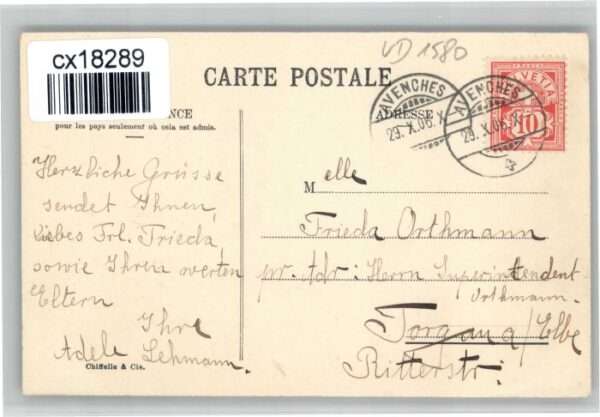 cx18289
VD 1580
CARTE POSTALE
NCE
pour les pays seulement où cela est admis.
ADRESSE
AVENCHES
29.X.06.X
AVENCHES
29.X.06.X
HELVETIA
10
Herzliche Grüsse
sendet Ihnen,
liebes Frl. Frieda,
sowie Ihren werten
Eltern
Ihre
Adele Lehmann.
Chiffelle & Cie.
Melle
Frieda Orthmann
pr. Adr: Herrn Superintendent
Orthmann.
Torgau a/Elbe
Ritterstr: